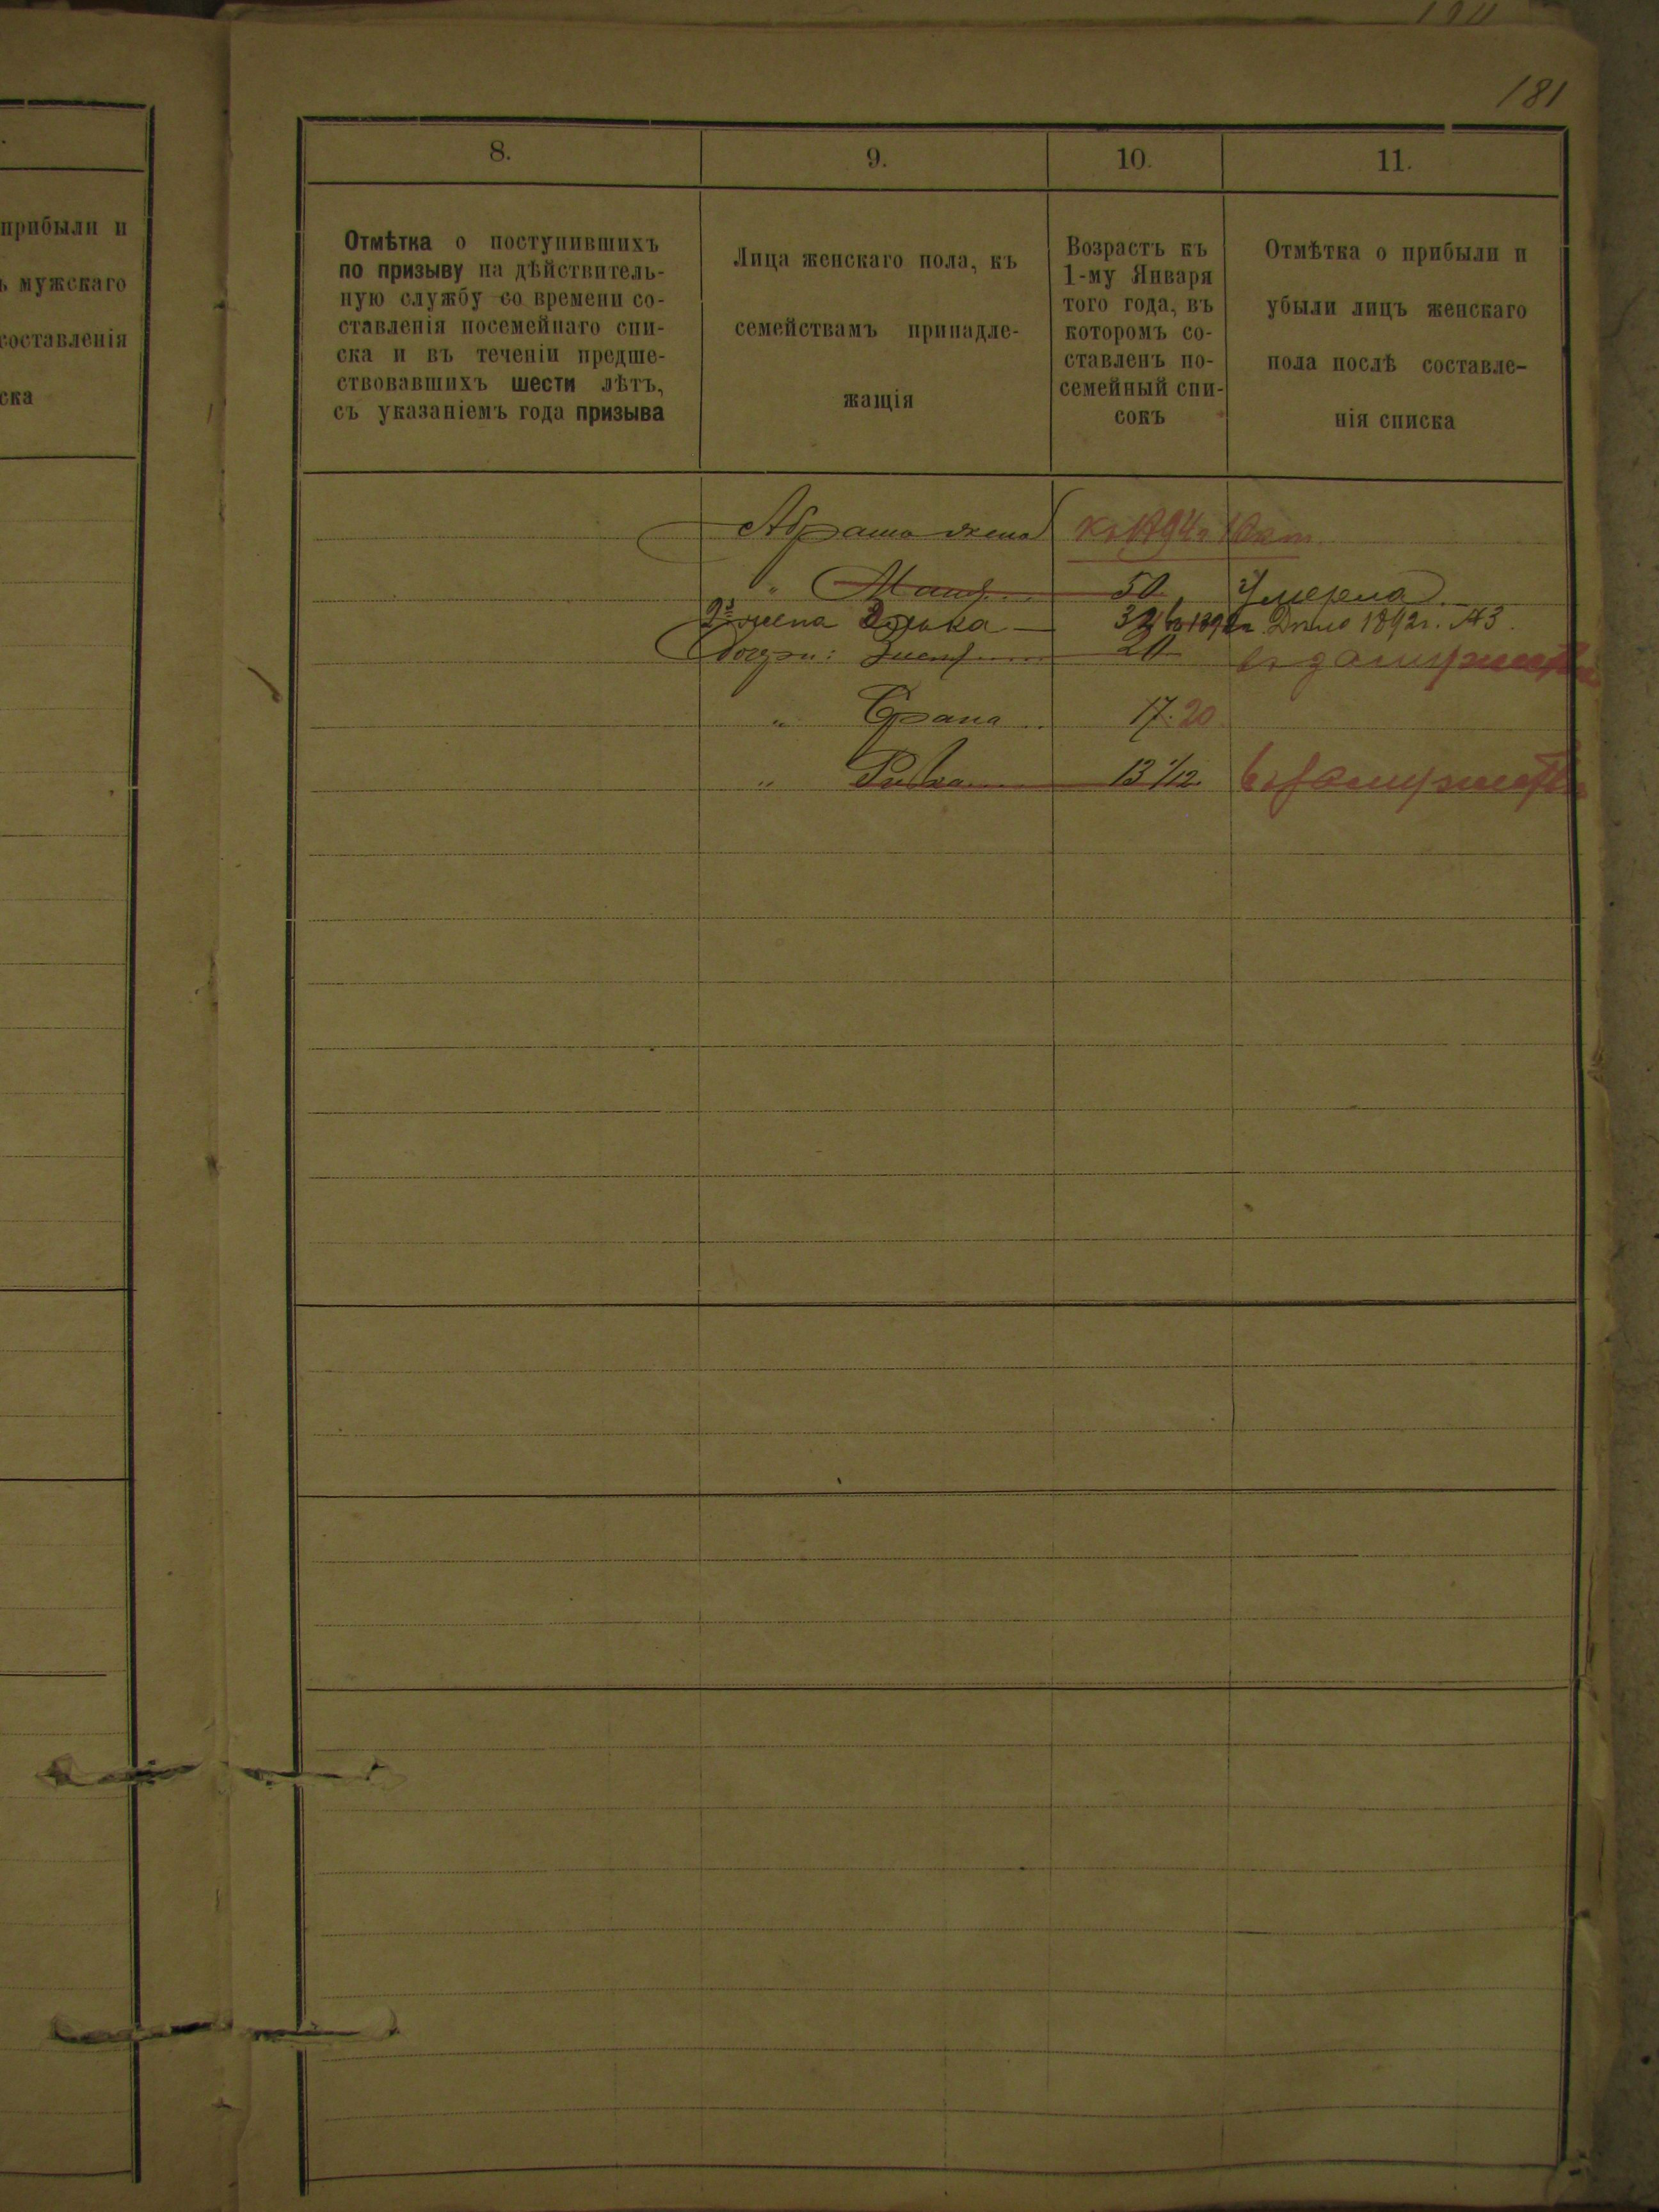 181
прибыли и
ъ мужскаго
составленія
ска
8.
9.
10.
11.
Отмѣтка о поступившихъ
по призыву на дѣйствитель-
ную службу со времени со-
ставленія посемейнаго спи-
ска и въ теченіи предше-
ствовавшихъ шести лѣтъ,
съ указаніемъ года призыва
Лица женскаго пола, къ
семействамъ принадле-
жащія
Возрастъ къ
1-му Января
того года, въ
которомъ со-
ставленъ по-
семейный спи-
сокъ
Отмѣтка о прибыли и
убыли лицъ женскаго
пола послѣ составле-
нія списка
Абрама жена
" 50 Умерла
2я жена — Дѣло 1892г. №3.
Дочери: 20 въ замужествѣ
" 17. 20
" Ривка 13 1/12 въ замужествѣ